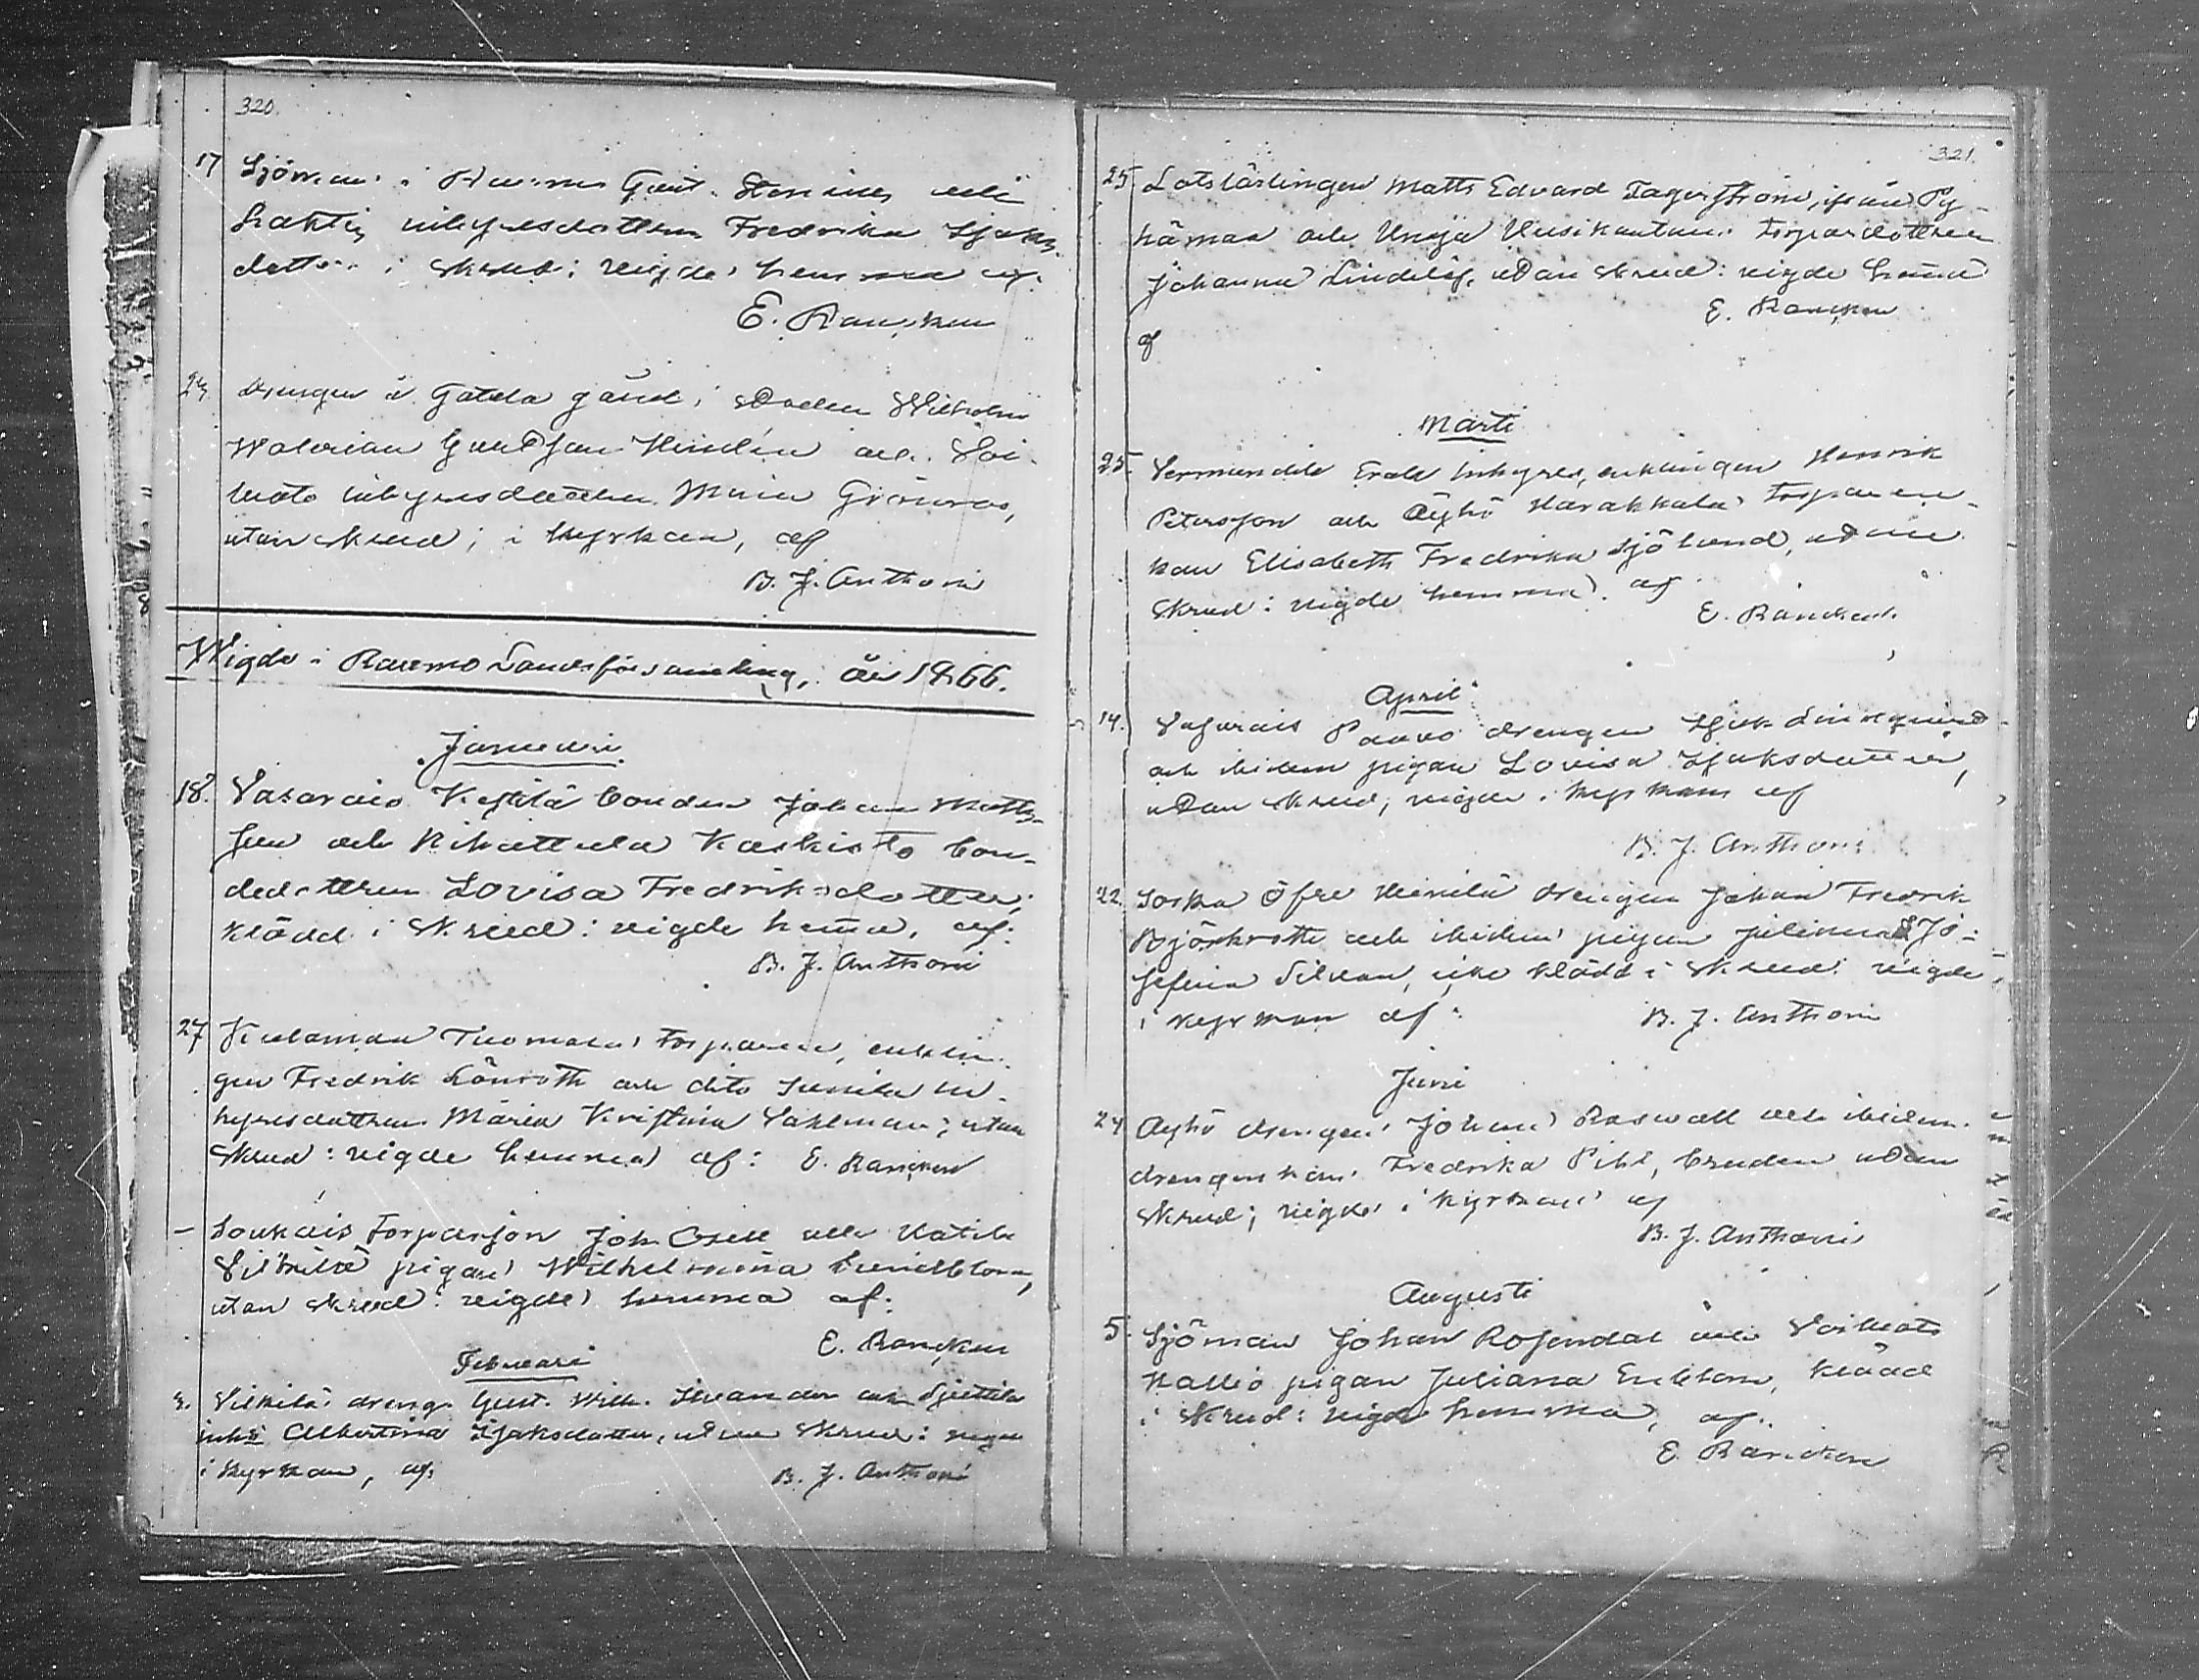 320.
17 Sjöman i Gust. och
inhysesdottern Fredrika
i skrud: vigde hemma af:
E. Rancken
23 drengen å gård i Wilhelm
Walerian och
inhysesdottern Maria
utan skrud; i kyrkan, af
B. J. Anthoni
Wigde i Raumo Landsförsamling, år 1866.
Januari
18. Vasarais Kestilä bonden Johan Matts-
son och Kihattula Kaskisto bon-
dedottren Lovisa Fredriksdotter;
klädd i skrud: vigde hema, af:
B. J. Anthoni
27 Kulamaa Tuomala torparen, enklin-
gen Fredrik Lönroth och dito in-
hysesdottren Maria Kristina Sahlman; utan
skrud: vigde hemma af: E. Rancken
– torparson Joh. och
pigan Wilhelmina
utan skrud: vigde hemma af:
E. Rancken
Februari
3. dreng. Gust. Wilh. och
Albertina Isaksdotter, utan skrud: vigde
i kyrkan, af:
B. J. Anthoni
321.
25 Lotslärlingen Matts Edvard Fagerström, ifrån Py-
hämaa och Unaja torparedottren
Johanna Lindelöf, utan skrud: vigde hema
E. Rancken
af
Marti
25. inhyses, enklingen Henrik
Petersson och Äyhö Harakkala torpareen-
kan Elisabeth Fredrika Sjölund, utan
skrud: vigde hemma af
E. Rancken.
April
14. Vasarais Paavo drengen Isak Lindqvist
och ibidem pigan Lovisa Isaksdotter,
utan skrud; vigde i kyrkan af
B. J. Anthoni
22. Sorka Öfre Heinilä drengen Johan Fredrik
Björkroth och ibidem pigan Juliana Jo-
sefina Silvan, icke klädd i skrud: vigde
i kyrkan af:
B. J. Anthoni
Juni
24 Äyhö drengen Johan Roswall och ibidem
drengenkan Fredrika Pihl, bruden utan
skrud; vigde i kyrkan af
B. J. Anthoni
Augusti
5. Sjöman Johan Rosendal och Voiluoto
Kallio pigan Juliana Enblom, klädd
i skrud: vigde hemma, af:
E. Rancken